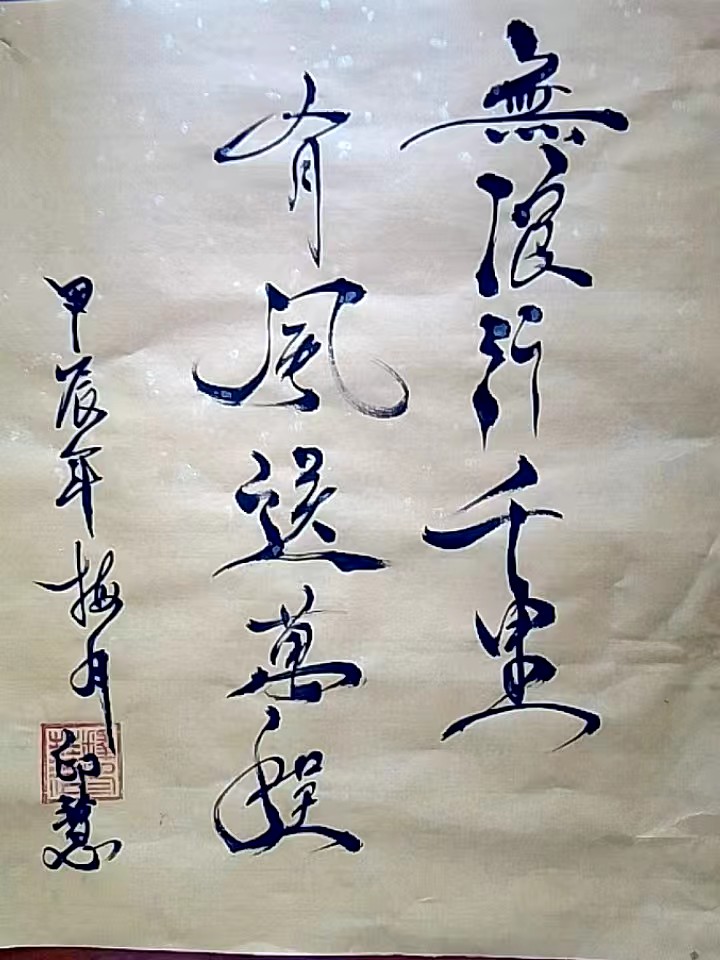 無浪行千里
有風送萬程
甲辰年梅月
印慧